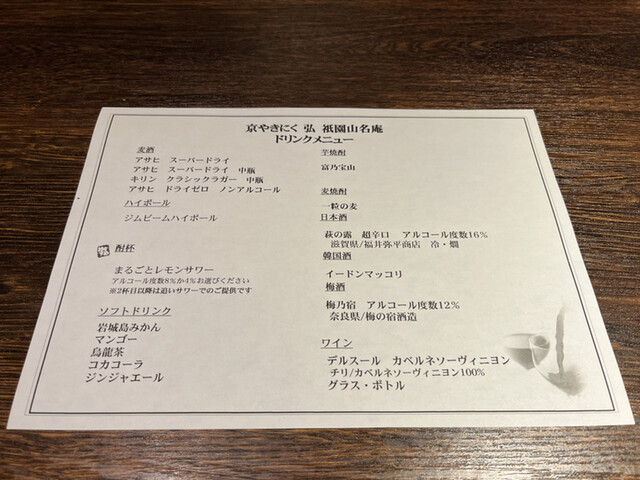 京やきにく 弘 祇園山名庵
ドリンクメニュー
麦酒
アサヒ スーパードライ
アサヒ スーパードライ 中瓶
キリン クラシックラガー 中瓶
アサヒ ドライゼロ ノンアルコール
ハイボール
ジムビームハイボール
酎杯
まるごとレモンサワー
アルコール度数8%か4%お選びください
※2杯目以降は追いサワーでのご提供です
ソフトドリンク
岩城島みかん
マンゴー
烏龍茶
コカコーラ
ジンジャエール
芋焼酎
富乃宝山
麦焼酎
一粒の麦
日本酒
萩の露 超辛口 アルコール度数16%
滋賀県/福井弥平商店 冷・燗
韓国酒
イードンマッコリ
梅酒
梅乃宿 アルコール度数12%
奈良県/梅の宿酒造
ワイン
デルスール カベルネソーヴィニヨン
チリ/カベルネソーヴィニヨン100%
グラス・ボトル